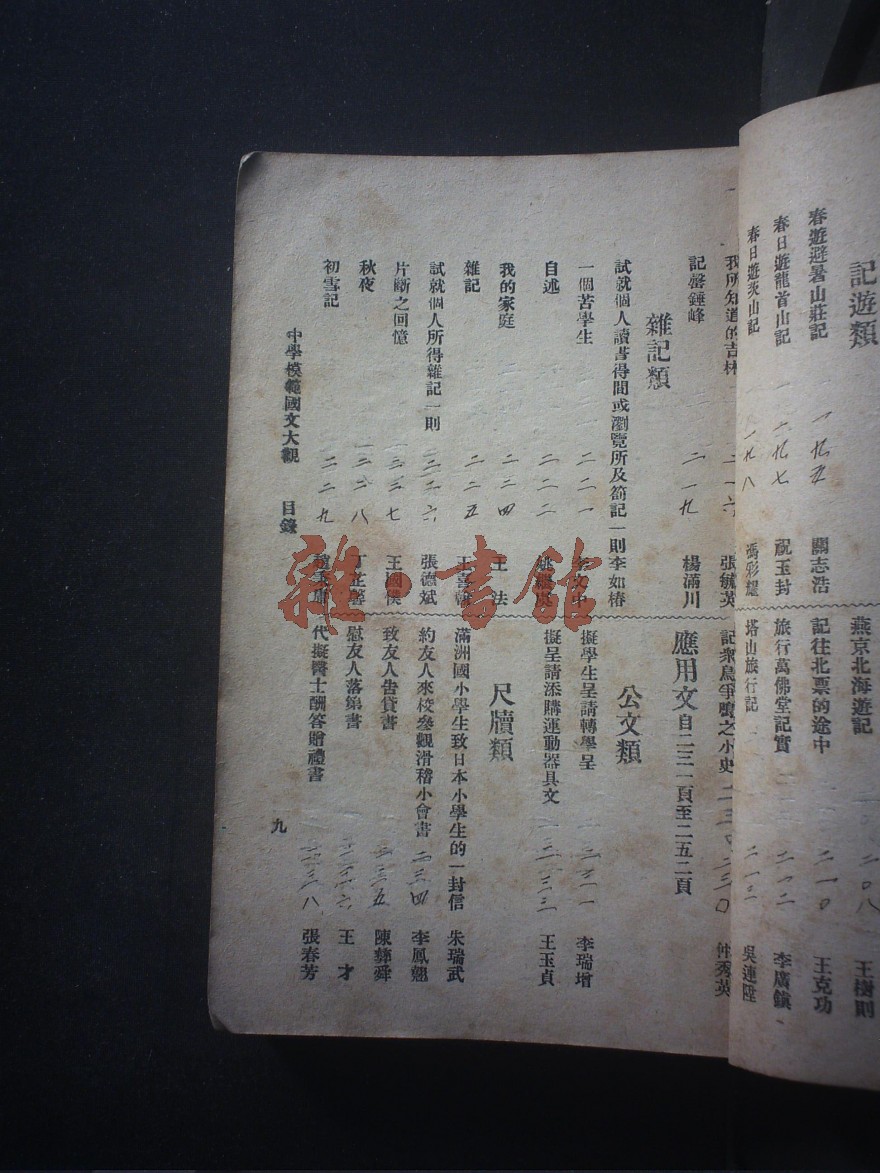 記遊類
春遊避暑山莊記 一九五 關志浩
春日遊龍首山記 一九七 祝玉封
春日遊炎山記 一九八 馮彩耀
燕京北海遊記 二〇八 王樹則
記往北票的途中 二一〇 王克功
旅行萬佛堂記實 二一二 李廣鎮
塔山旅行記 吳連陞
我所知道的吉林 二一六 張毓英
記罄錘峰 二一九 楊滿川
雜記類
試就個人讀書得間或瀏覽所及箚記一則 李如椿
一個苦學生 二二一 李文中
自述 二二二
我的家庭 二二四 王法
雜記 二二五 王喜
試就個人所得雜記一則 二二六 張德斌
片斷之回憶 二二七 王國
秋夜 二二八 丁芷馨
初雪記 二二九
記衆鳥爭喧之小史 二三〇 仲秀英
應用文自二三一頁至二五二頁
公文類
擬學生呈請轉學呈 二三一 李瑞增
擬呈請添購運動器具文 二三三 王玉貞
尺牘類
滿洲國小學生致日本小學生的一封信 朱瑞武
約友人來校參觀滑稽小會書 二三四 李鳳翹
致友人告貸書 二三五 陳彝舜
慰友人落第書 二三六 王才
代擬醫士酬答贈禮書 二三八 張春芳
中學模範國文大觀 目錄
九
雜·書館